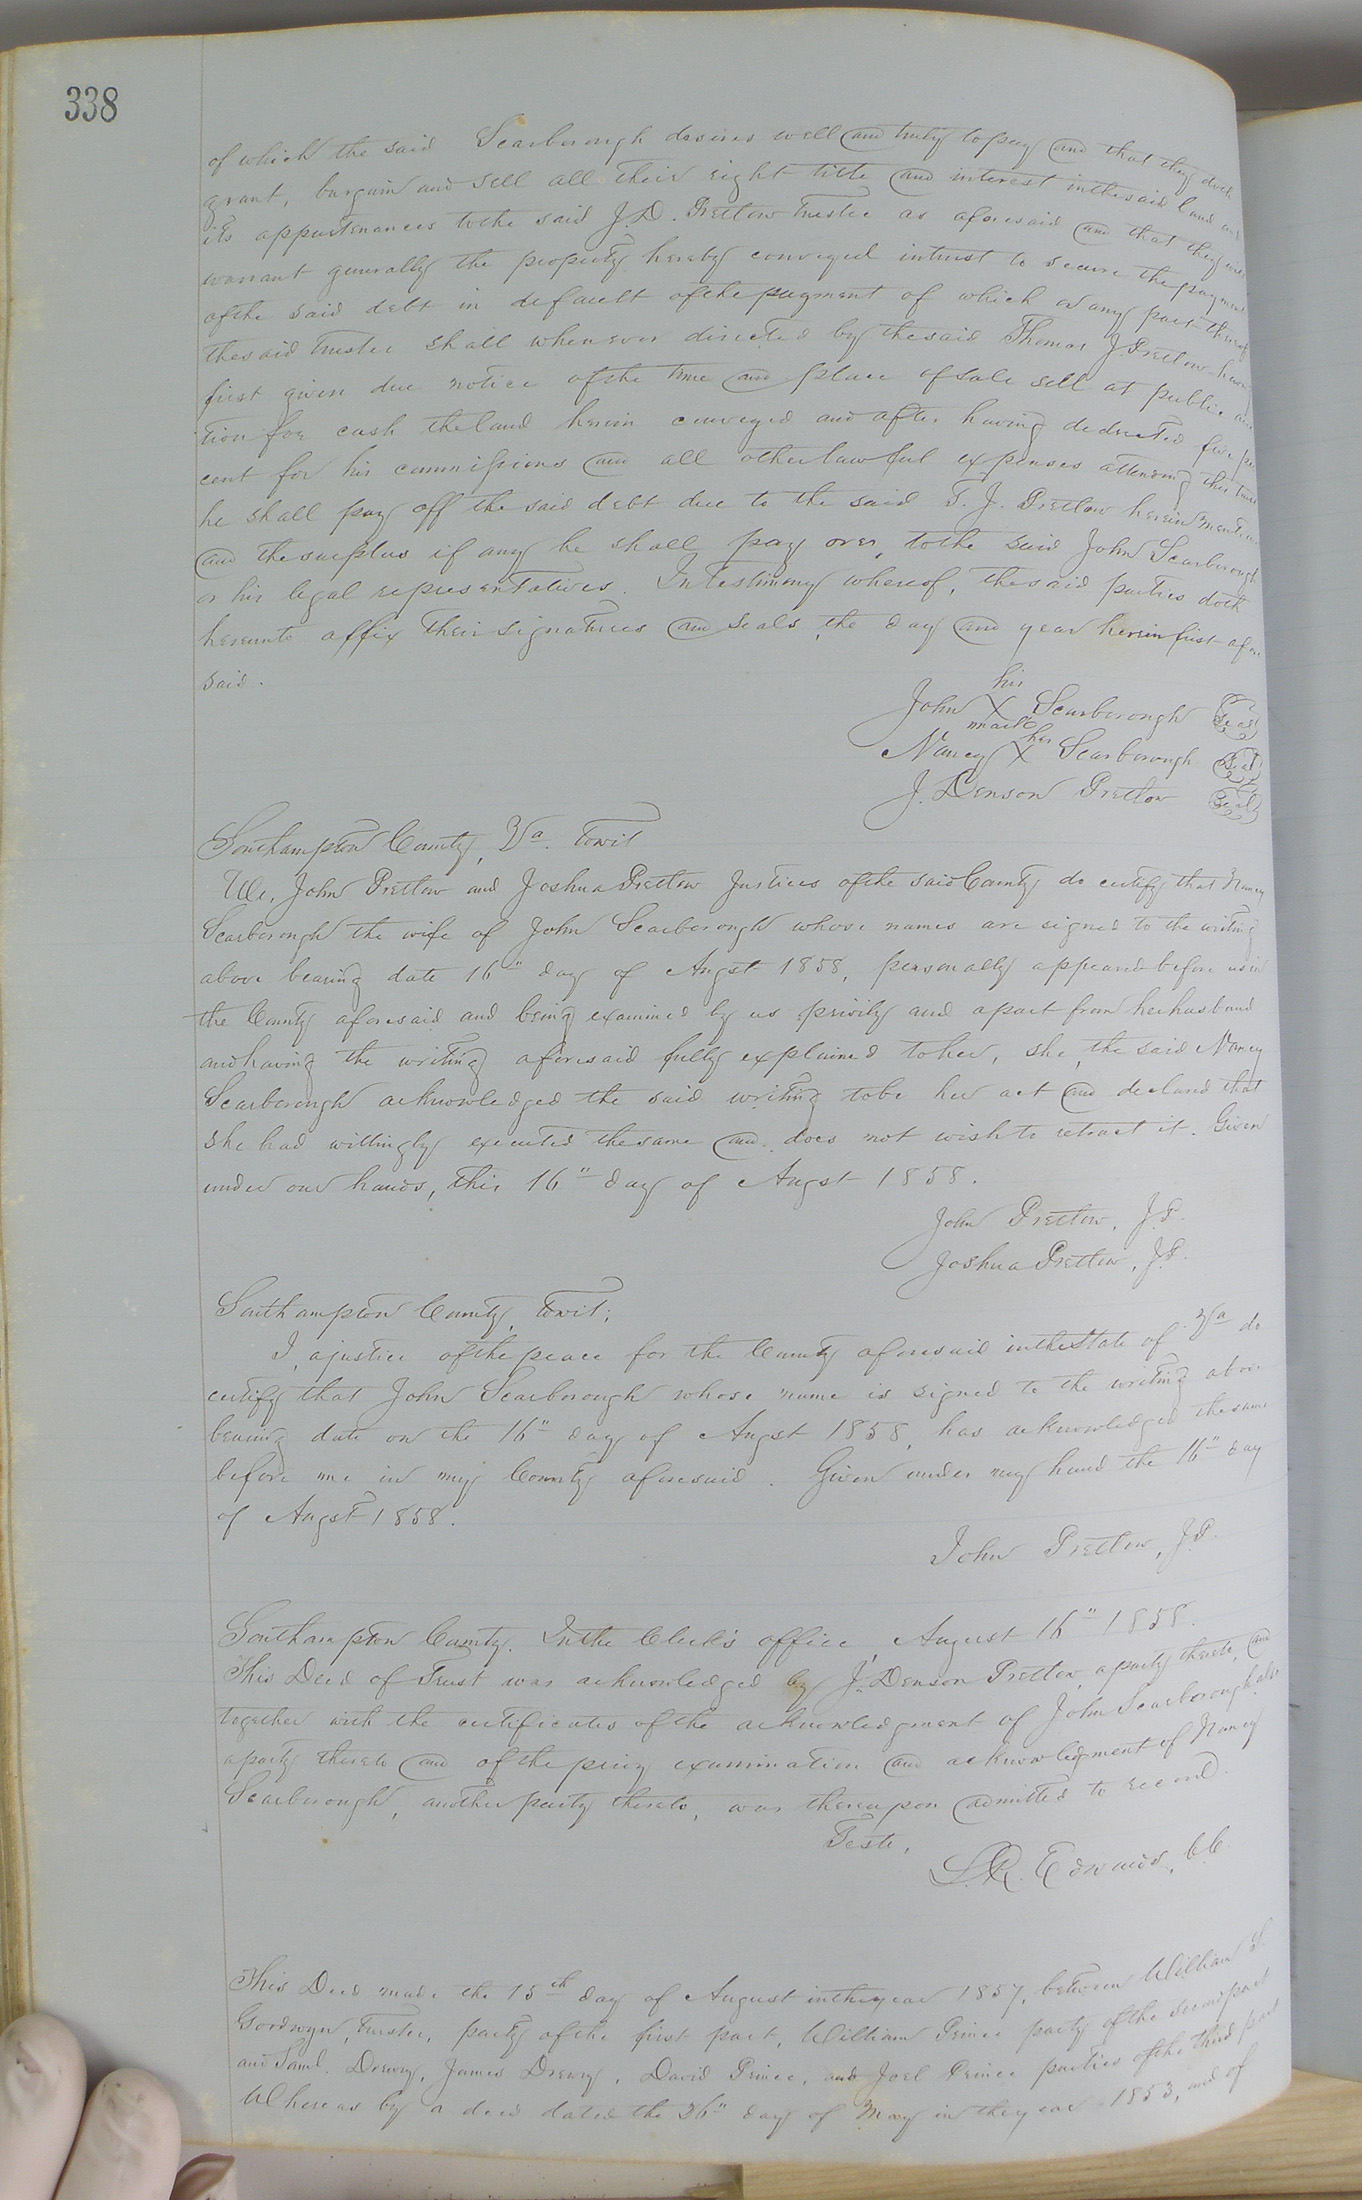 338
of which the said Scarborough desires well and truly to pay and that they doth
grant, bargain and sell all their right title and interest in the said land and
its appurtenances to the said J.D. Pretlow trustee as aforesaid and that they will
warrant generally the property hereby conveyed in trust to secure the payment
of the said debt in default of the payment of which or any part thereof
the said trustee shall whenever directed by the said Thomas J. Pretlow having
first given due notice of the time and place of sale sell at public auc
tion for cash the land herein conveyed and after having deducted five per
cent for his commissions and all other lawful expenses attending this trust
he shall pay off the said debt due to the said T. J. Pretlow herein mention
and the surplus if any he shall pay over, to the said John Scarborough
or his legal representatives. In testimony whereof, the said parties doth
hereunto affix their signatures and seals, the day and year herein first afore
said.
his
John X Scarborough Seal
mark
her
Nancy X Scarborough Seal
J. Denson Pretlow Seal
Southampton County, Va. towit
We, John Pretlow and Joshua Pretlow Justices of the said County do certify that Nancy
Scarborough the wife of John Scarborough whose names are signed to the writing
above bearing date 16" day of Augst 1858, personally appeared before us in
the County aforesaid and being examined by us privily and apart from her husband
and having the writing aforesaid fully explained to her, she, the said Nancy
Scarborough acknowledged the said writing to be her act and declared that
she had willingly executed the same and does not wish to retract it. Given
under our hands, this 16" day of Augst 1858.
John Pretlow, J.P.
Joshua Pretlow, J.P.
Southampton County, towit;
I, a justice of the peace for the County aforesaid in the State of Va do
certify that John Scarborough whose name is signed to the writing above
bearing date on the 16" day of Augst 1858, has acknowledged the same
before me in my County aforesaid. Given under my hand the 16" day
of Augst 1858.
John Pretlow, J.P.
Southampton County. In the Clerk's office August 16" 1858.
This Deed of Trust was acknowledged by J. Denson Pretlow, a party thereto, and
together with the certificates of the acknowledgment of John Scarborough also
a party thereto and of the privy examination and acknowledgment of Nancy
Scarborough, another party thereto, was thereupon admitted to record.
Teste,
L.R. Edwards, C.C.
This Deed made the 15th day of August in the year 1857, between William S.
Goodwyn, Trustee, party of the first part, William Prince party of the second part
and Saml. Drewry, James Drewry, David Prince, and Joel Prince parties of the third part
Whereas by a deed dated the 26" day of May in the year 1853, and of